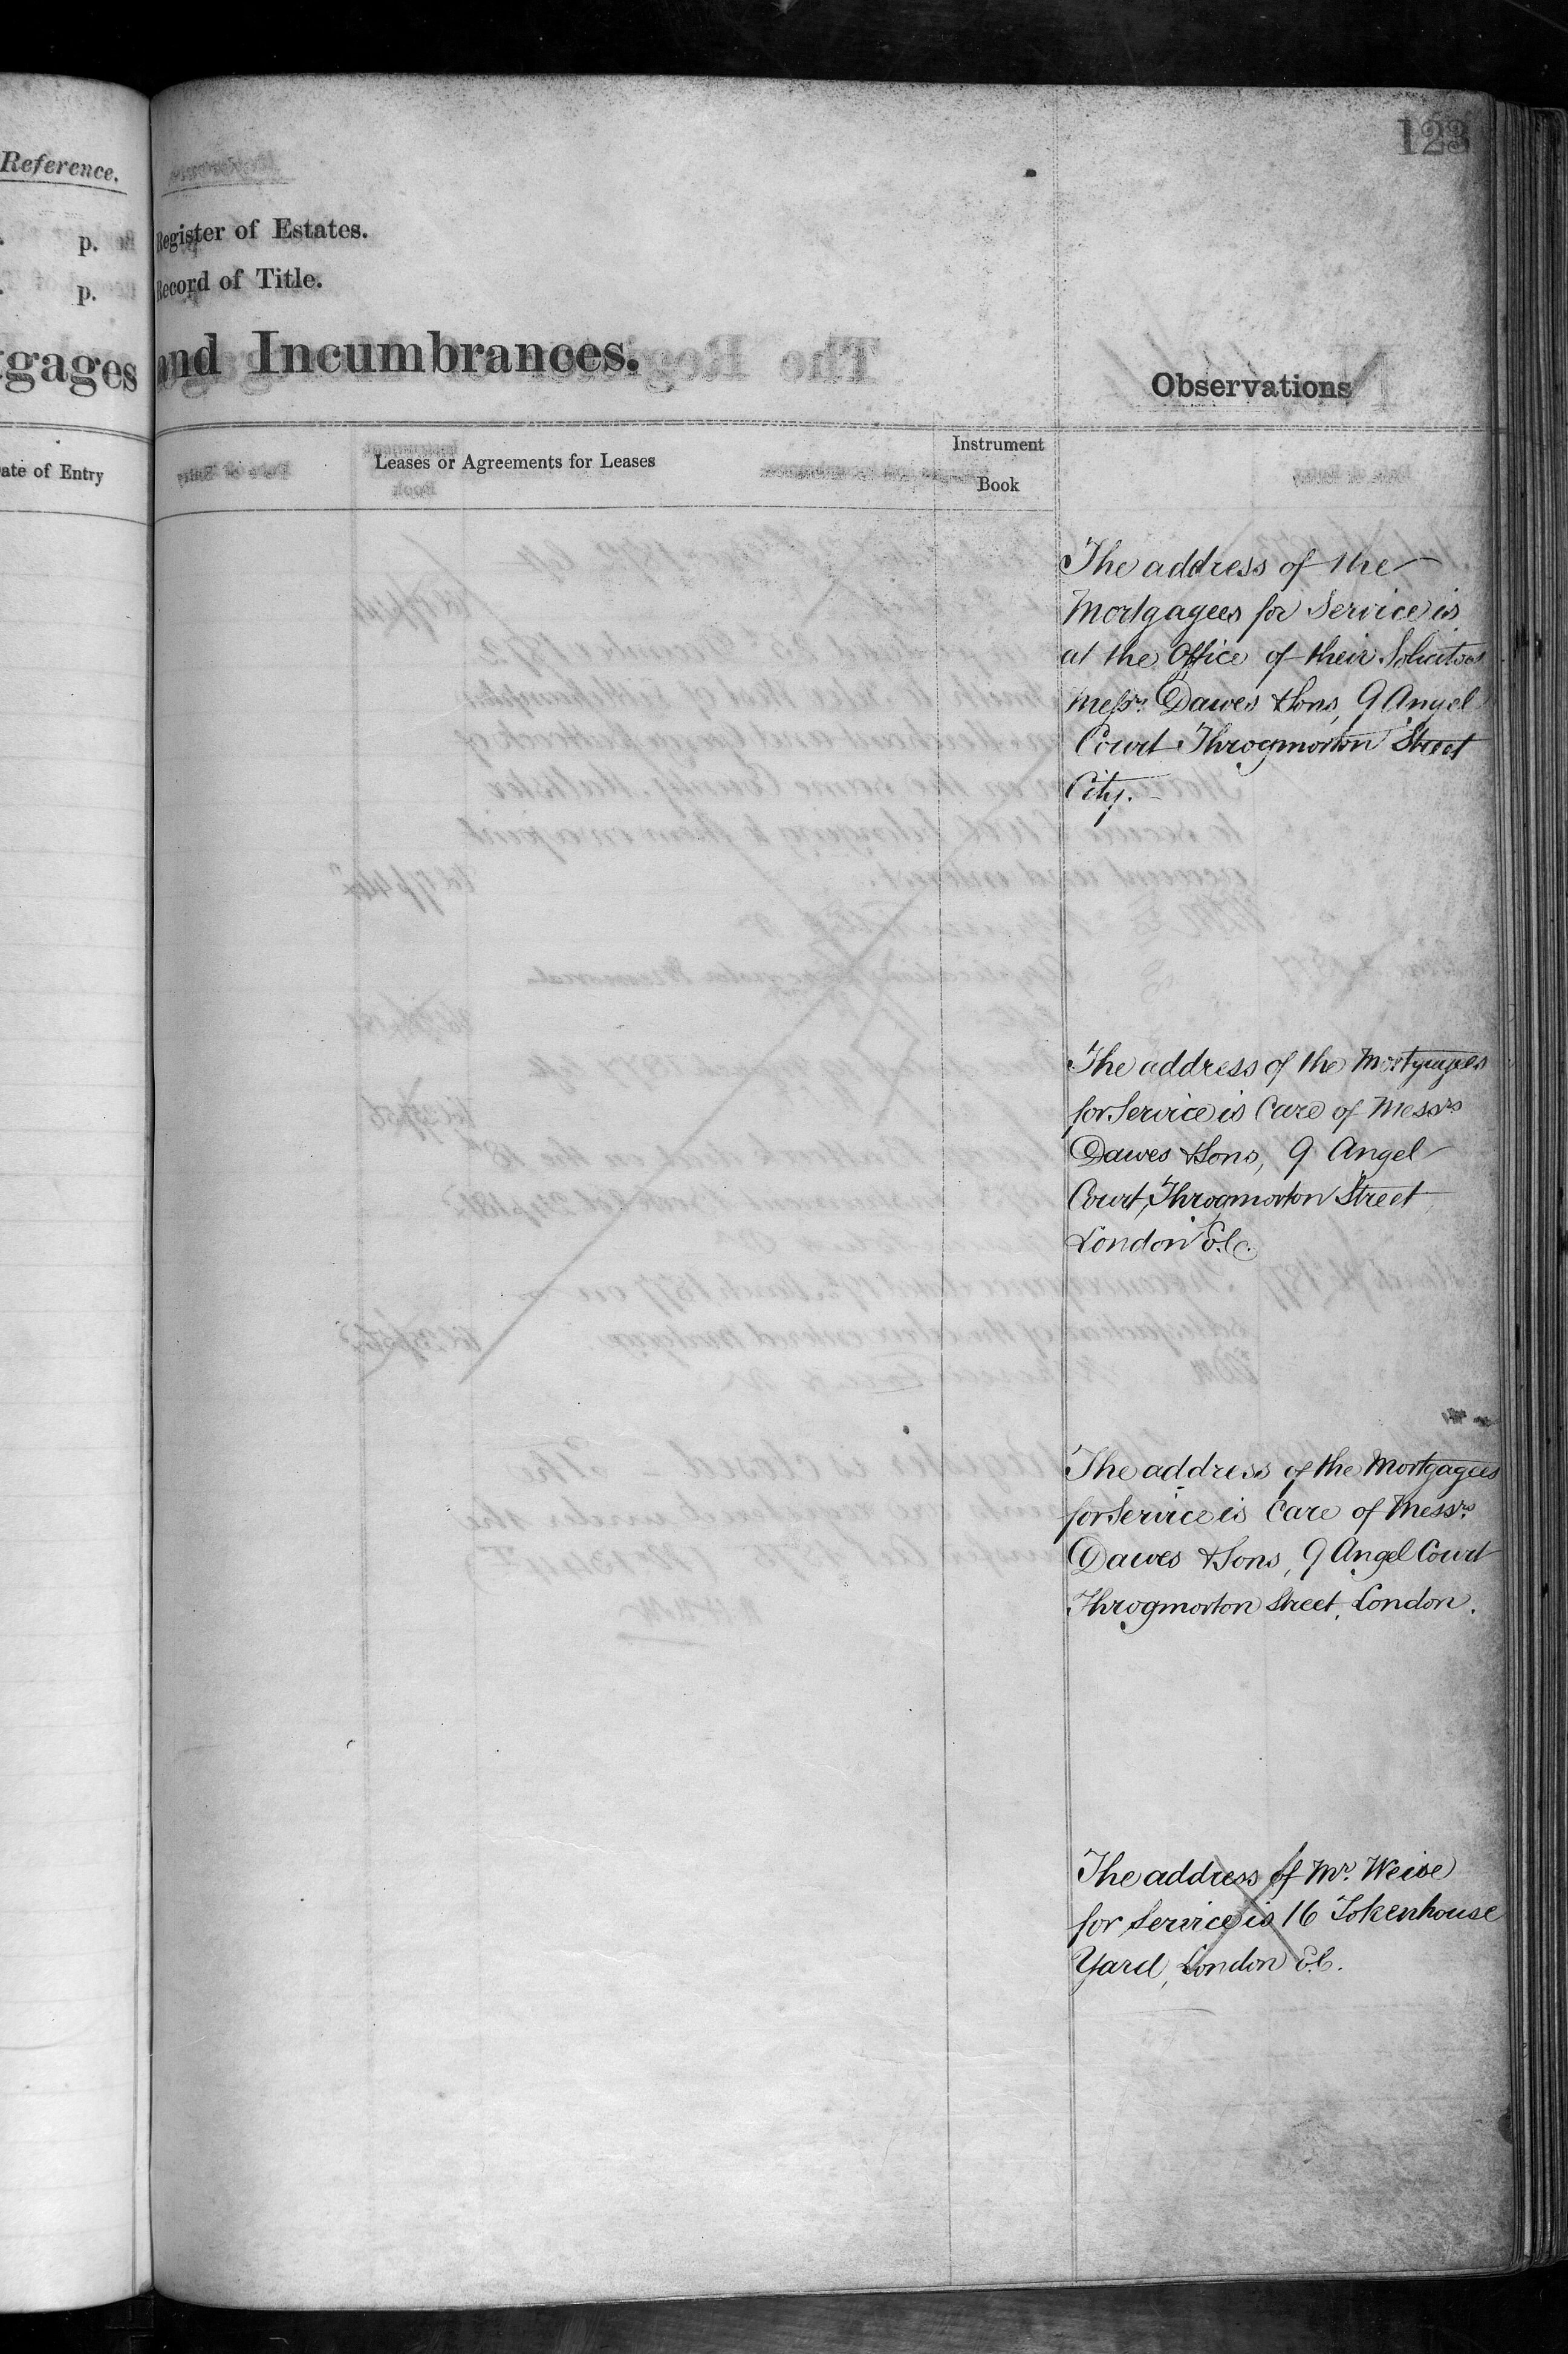 123
Reference.
p.
p.
gages
ate of Entry
Register of Estates.
Record of Title.
and Incumbrances.
Observations
Leases or Agreements for Leases
Instrument
Book
The address of the
Mortgagees for Service is
at the Office of their Solicitors
Messrs. Dawes & Sons, 9 Angel
Court Throgmorton Street
City.
The address of the Mortgagees
for Service is Care of Messrs
Dawes & Sons, 9 Angel
Court, Throgmorton Street
London E.C.
The address of the Mortgagees
for Service is Care of Messrs.
Dawes & Sons, 9 Angel Court
Throgmorton Street, London.
The address of Mr. Weise
for Service is 16 Tokenhouse
Yard, London E.C.